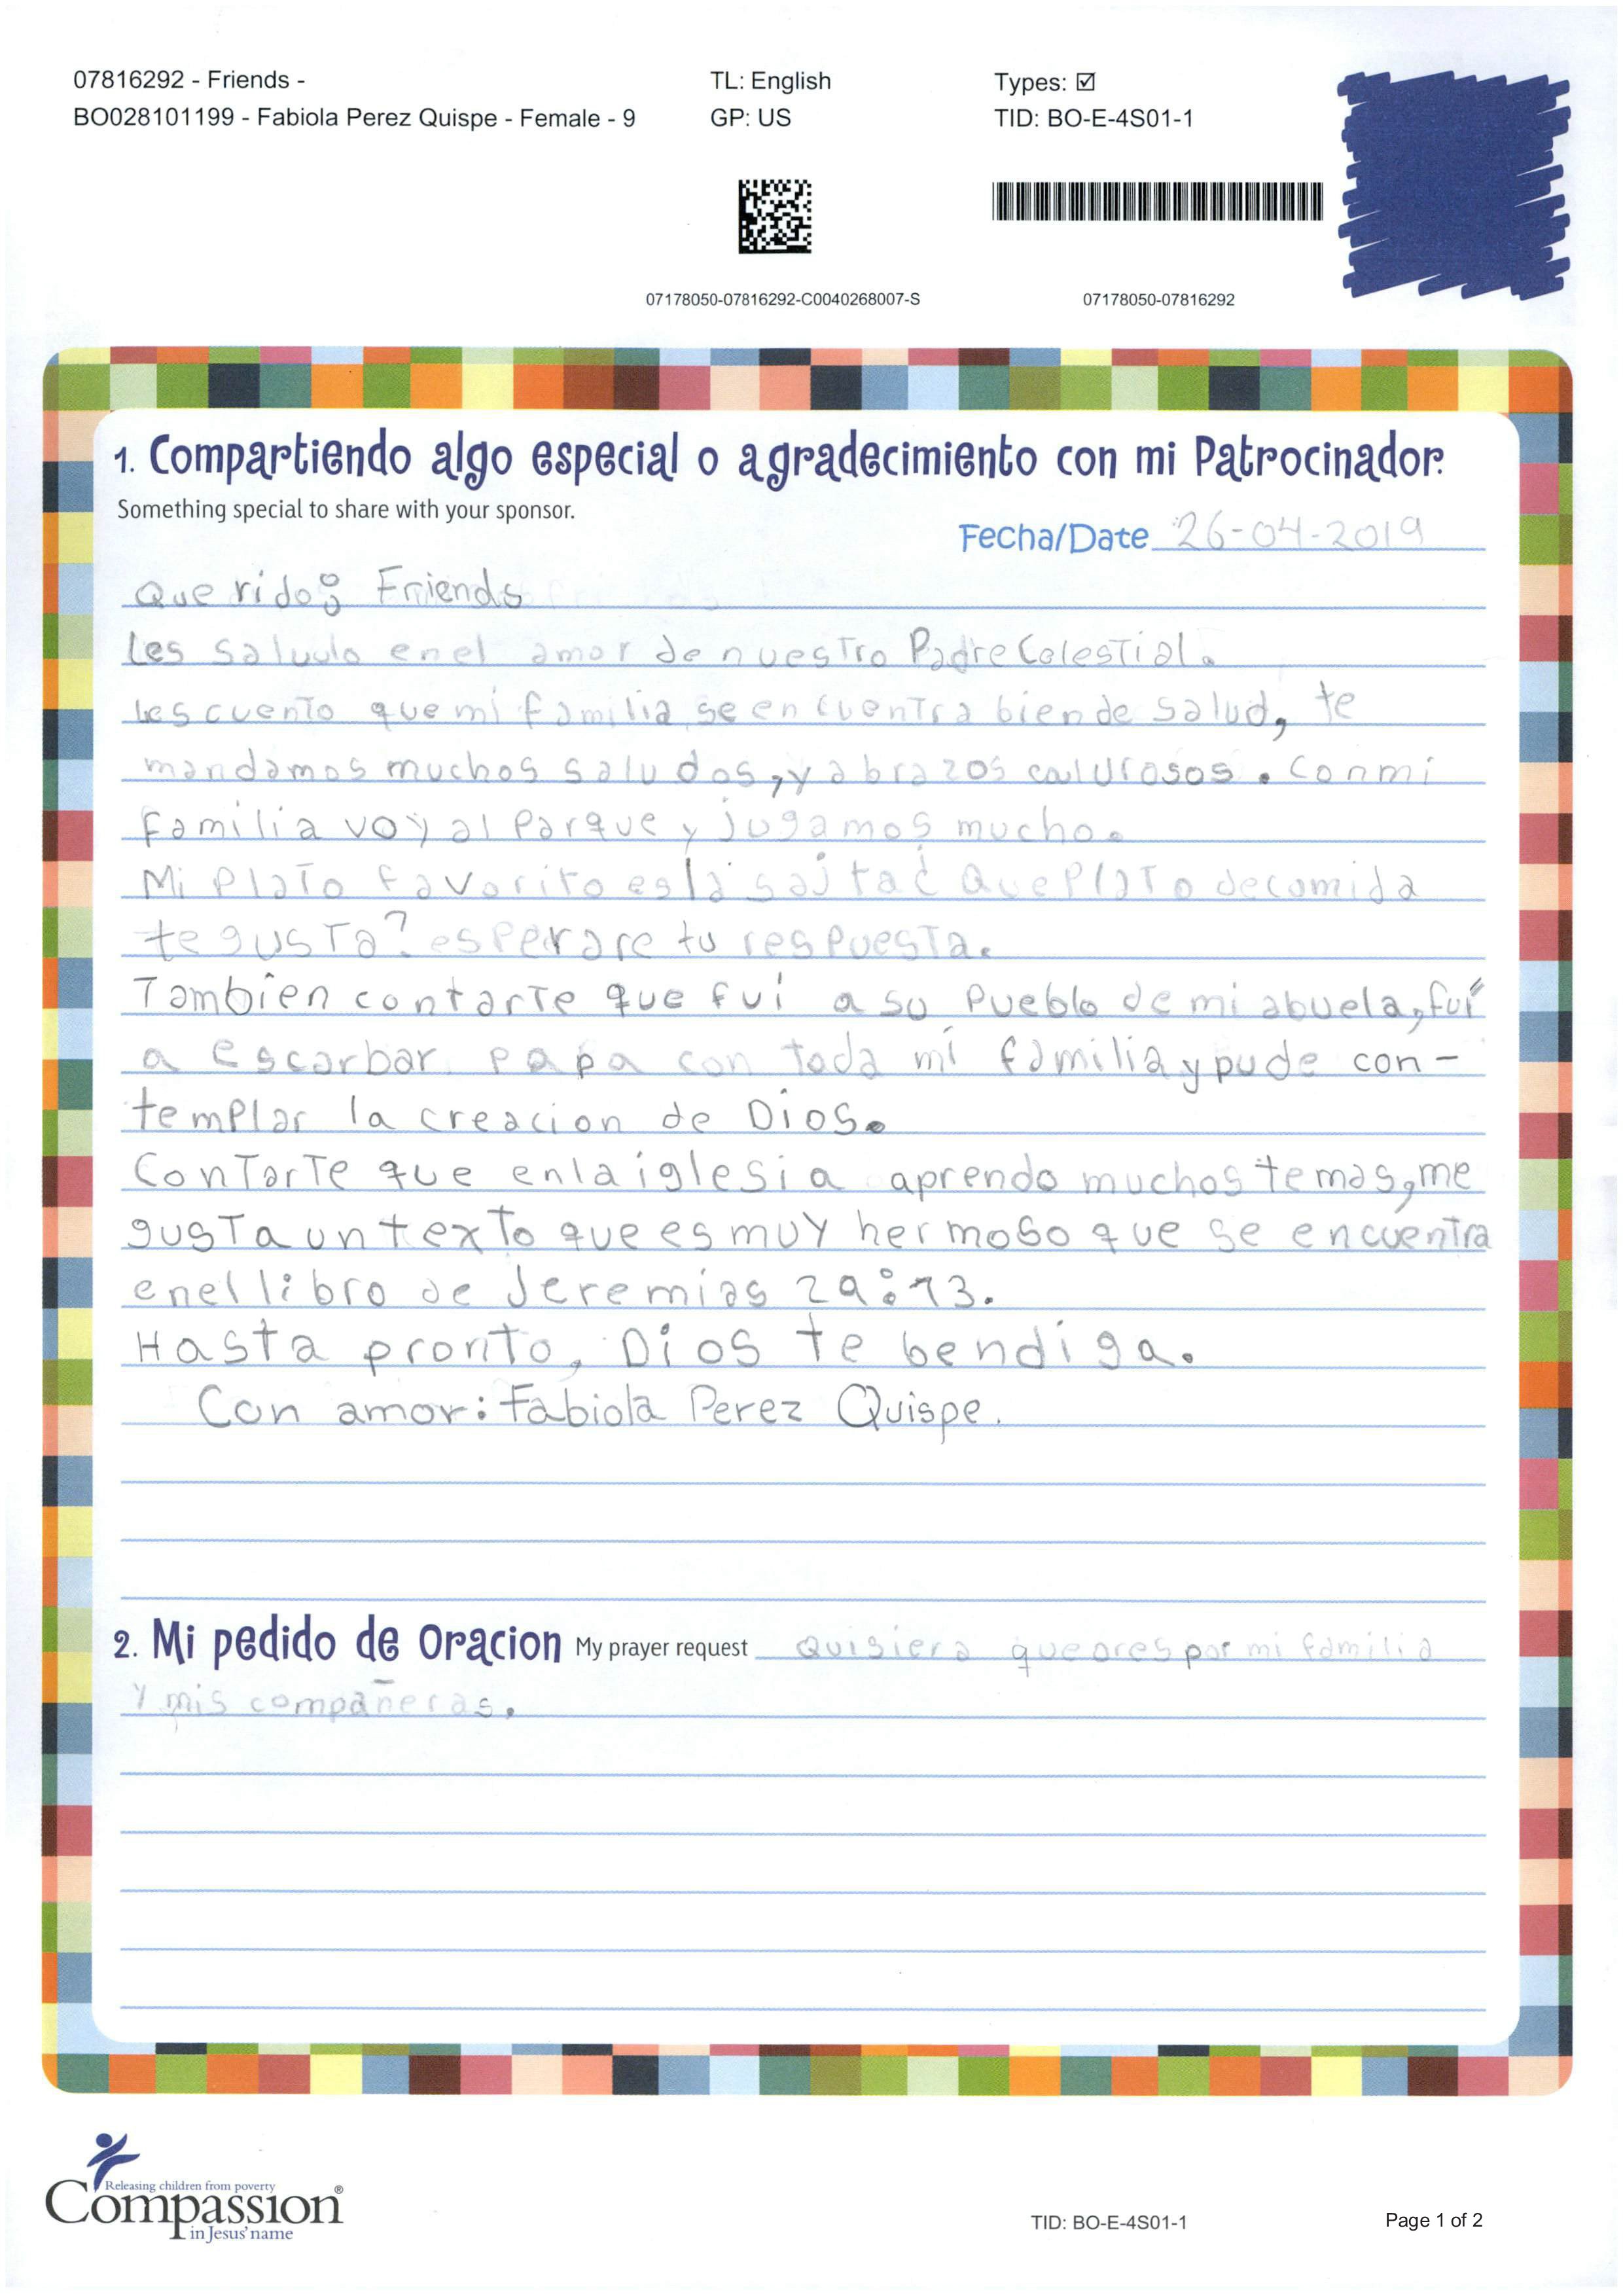 07816292 - Friends -
BO028101199 - Fabiola Perez Quispe - Female - 9
TL: English
GP: US
Types: ☑
TID: BO-E-4S01-1
07178050-07816292-C0040268007-S
07178050-07816292
1. Compartiendo algo especial o agradecimiento con mi Patrocinador.
Something special to share with your sponsor.
Fecha/Date 26-04-2019
Queridos: Friends
Les saludo en el amor de nuestro Padre Celestial.
Les cuento que mi familia se encuentra bien de salud, te
mandamos muchos saludos, y abrazos calurosos. Con mi
familia voy al parque y jugamos mucho.
Mi plato favorito es la sajta ¿Que plato de comida
te gusta? esperare tu respuesta.
Tambien contarte que fui a su pueblo de mi abuela, fui
a escarbar papa con toda mi familia y pude con-
templar la creacion de Dios.
Contarte que en la iglesia aprendo muchos temas, me
gusta un texto que es muy hermoso que se encuentra
en el libro de Jeremias 29:13.
Hasta pronto, Dios te bendiga.
Con amor: Fabiola Perez Quispe.
2. Mi pedido de Oracion My prayer request Quisiera que ores por mi familia
y mis compañeras.
Releasing children from poverty
Compassion®
in Jesus' name
TID: BO-E-4S01-1
Page 1 of 2